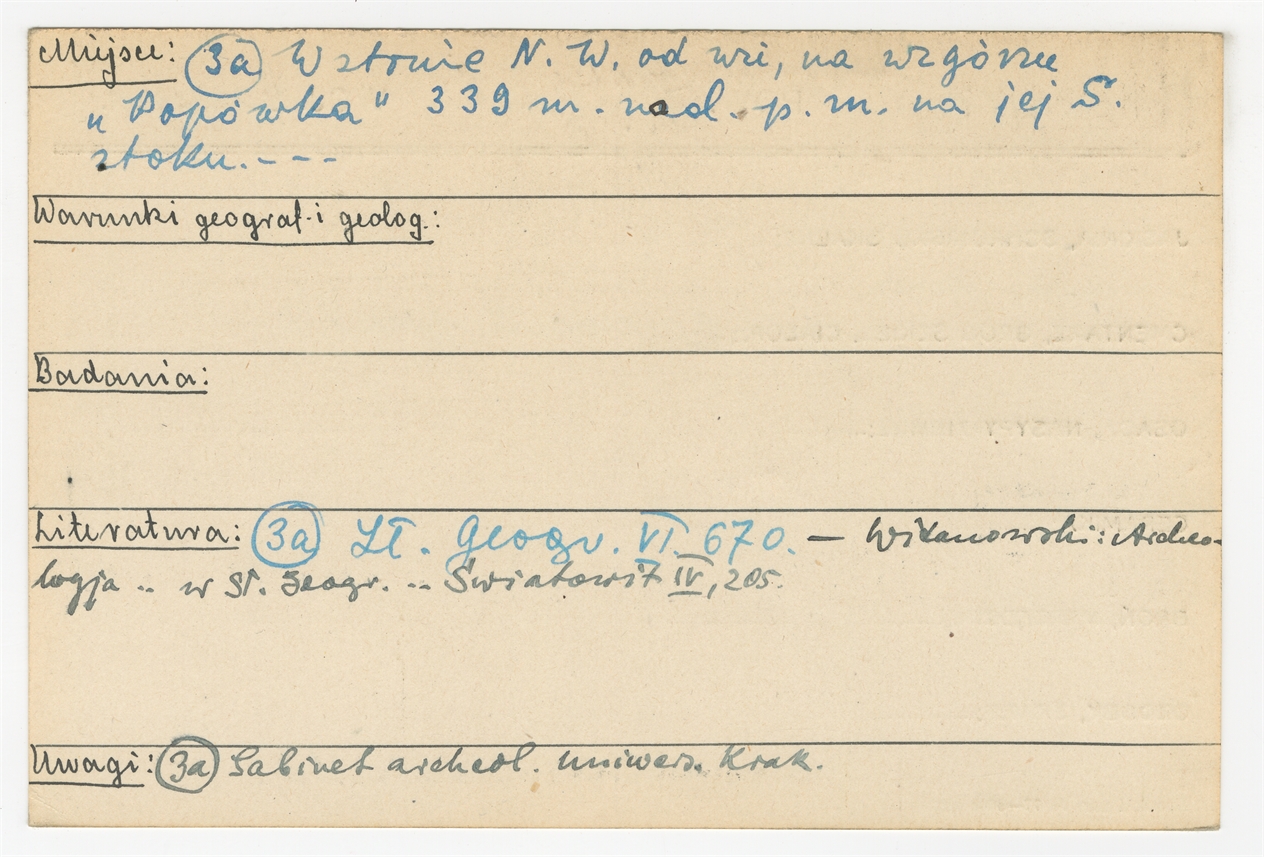 Miejsce: (3a) W stronie N. W. od wsi, na wzgórzu
„Popówka" 339 m. nad. p. m. na jej S.
stoku.---
Warunki geograf. i geolog.:
Badania:
Literatura: (3a) Sł. Geogr. VI. 670. — Witanowski: Archeo-
logja .. w Sł. Geogr. .. Światowit IV, 205.
Uwagi: (3a) Gabinet archeol. uniwers. Krak.